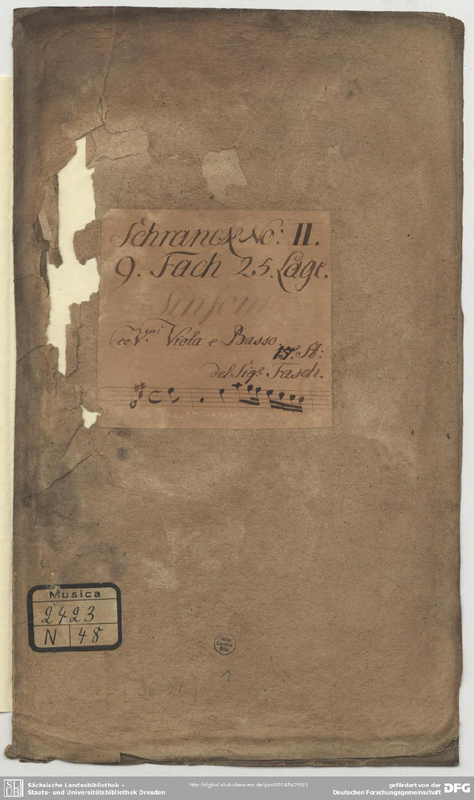 Schranck No: II.
9. Fach 25. Lage.
Sinfonia
co V.ni Viola e Basso.
17. St:
del Sig.r Fasch.
Musica
2423
N 48
1
Sächsische Landesbibliothek –
Staats- und Universitätsbibliothek Dresden
gefördert von der
Deutschen Forschungsgemeinschaft
DFG